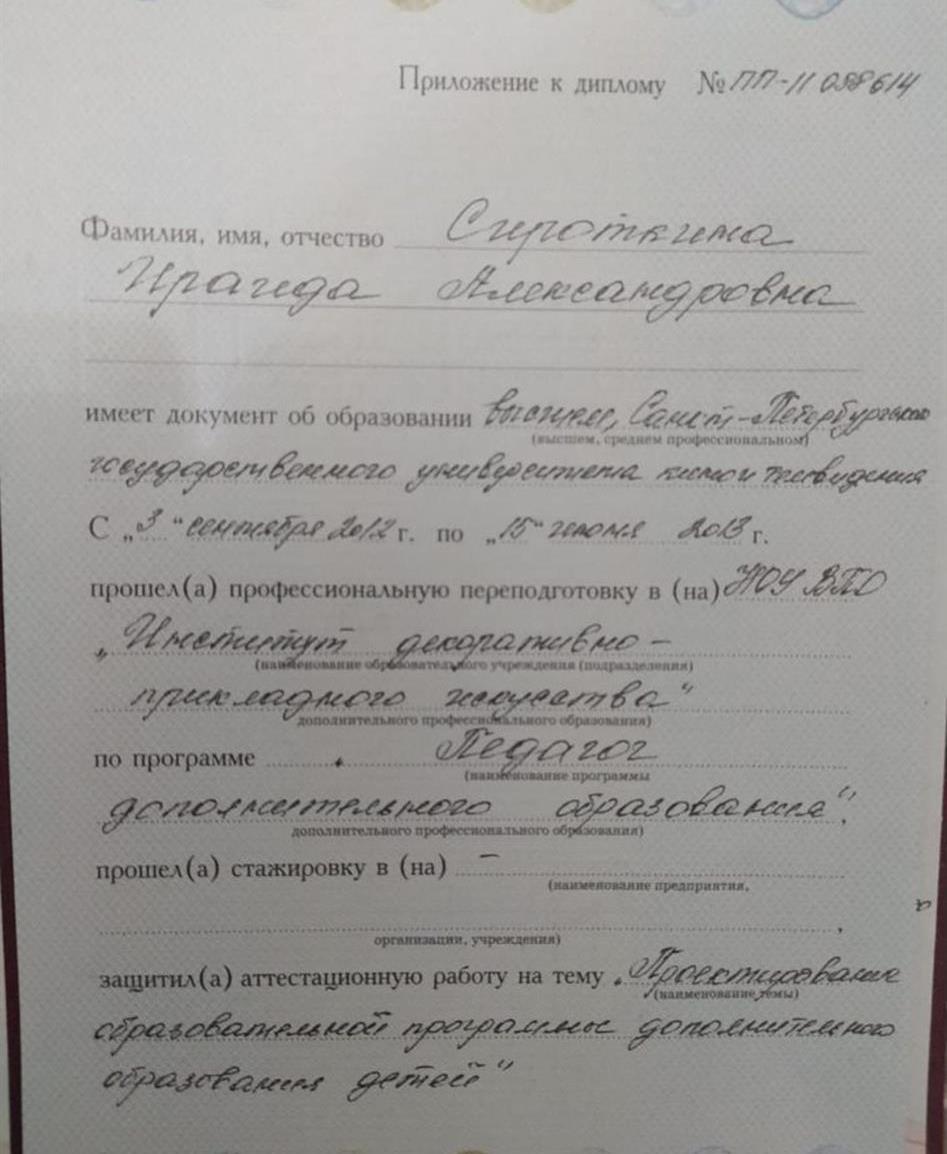 Приложение к диплому № ПП-II 058614
Фамилия, имя, отчество Сироткина
Ираида Александровна
имеет документ об образовании высшем, Санкт-Петербургского
(высшем, среднем профессиональном)
государственного университета кино и телевидения
С „3“ сентября 2012 г. по „15“ июня 2013 г.
прошел(а) профессиональную переподготовку в (на) НОУ ВПО
„Институт декоративно-
(наименование образовательного учреждения (подразделения)
прикладного искусства“
дополнительного профессионального образования)
по программе „Педагог
(наименование программы
дополнительного образования“,
дополнительного профессионального образования)
прошел(а) стажировку в (на) –
(наименование предприятия,
организации, учреждения)
защитил(а) аттестационную работу на тему „Проектирование
(наименование темы)
образовательной программы дополнительного
образования детей“